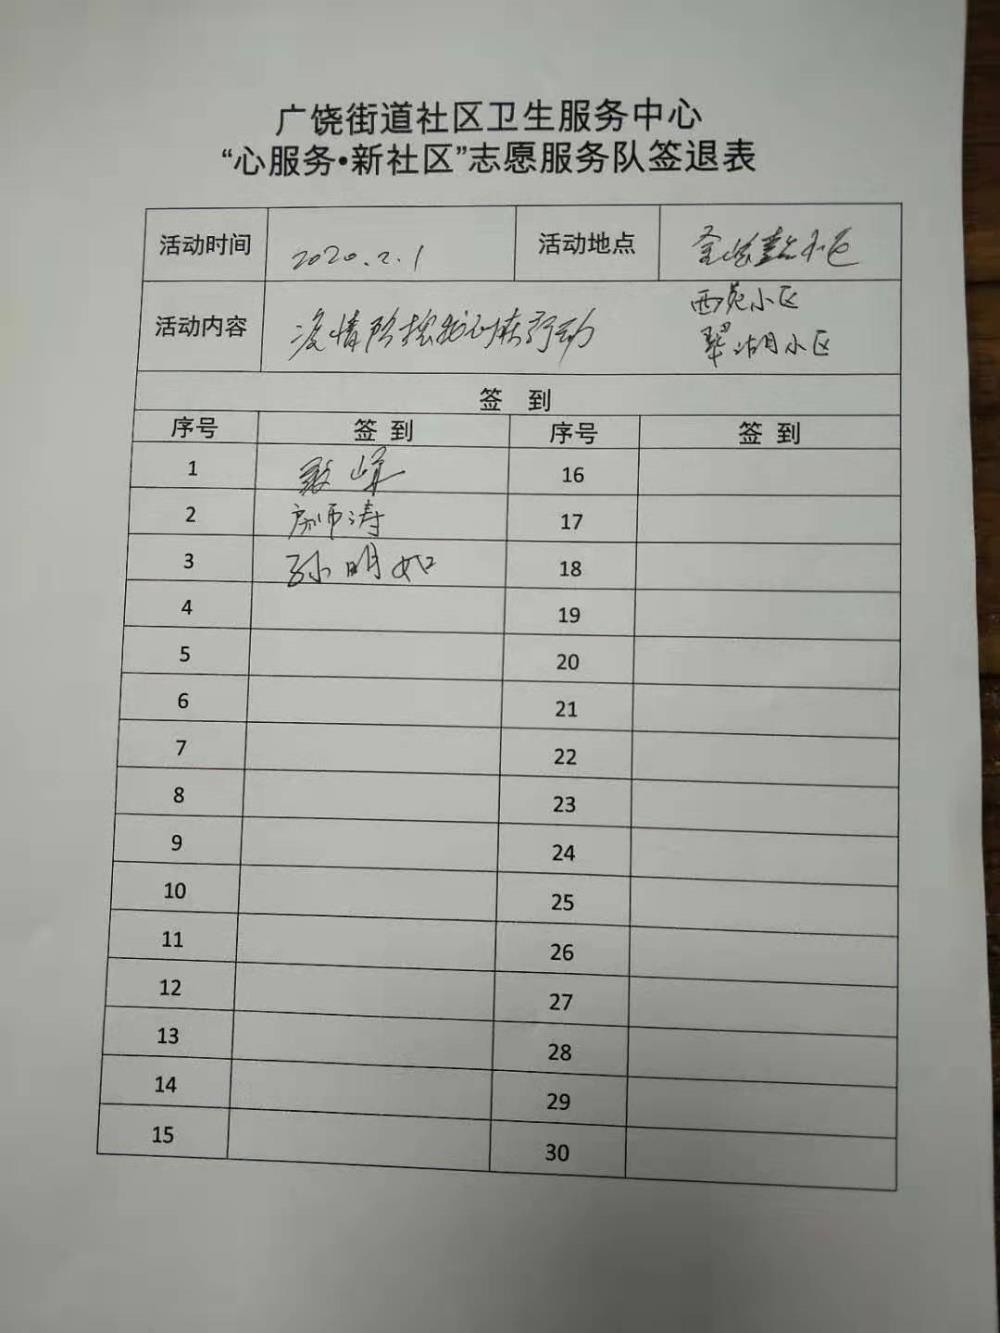 广饶街道社区卫生服务中心
“心服务•新社区”志愿服务队签退表
活动时间 2020.2.1 活动地点 小区
西苑小区
活动内容 疫情防控我们在行动 翠湖小区
签 到
序号 签 到 序号 签 到
1 峰 16
2 房师涛 17
3 孙明如 18
4 19
5 20
6 21
7 22
8 23
9 24
10 25
11 26
12 27
13 28
14 29
15 30